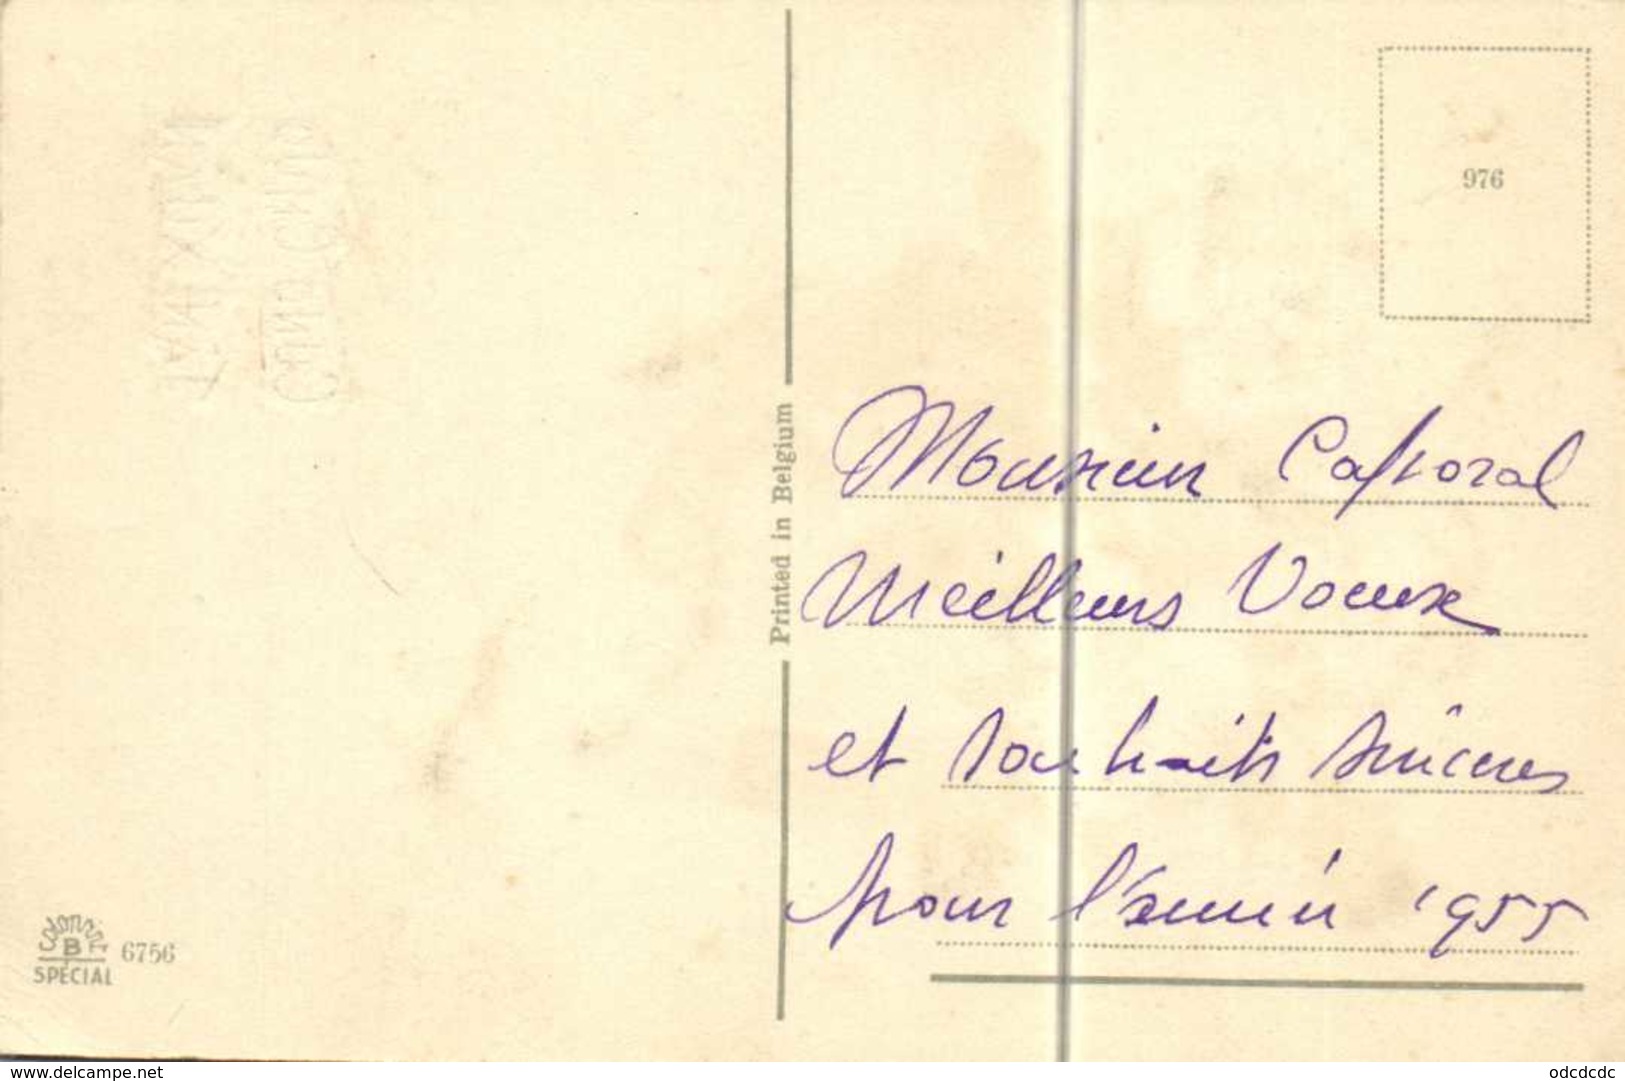 976
Printed in Belgium
Monsieur Caporal
Meilleurs Voeux
et souhaits sincères
pour l'année 1955
Colorprint
B
SPECIAL 6756
www.delcampe.net
odcdcdc